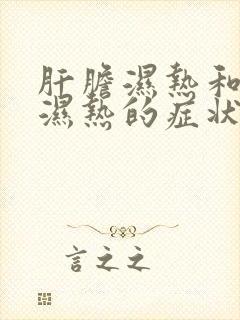 肝膽濕熱和
濕熱的症狀
言之之